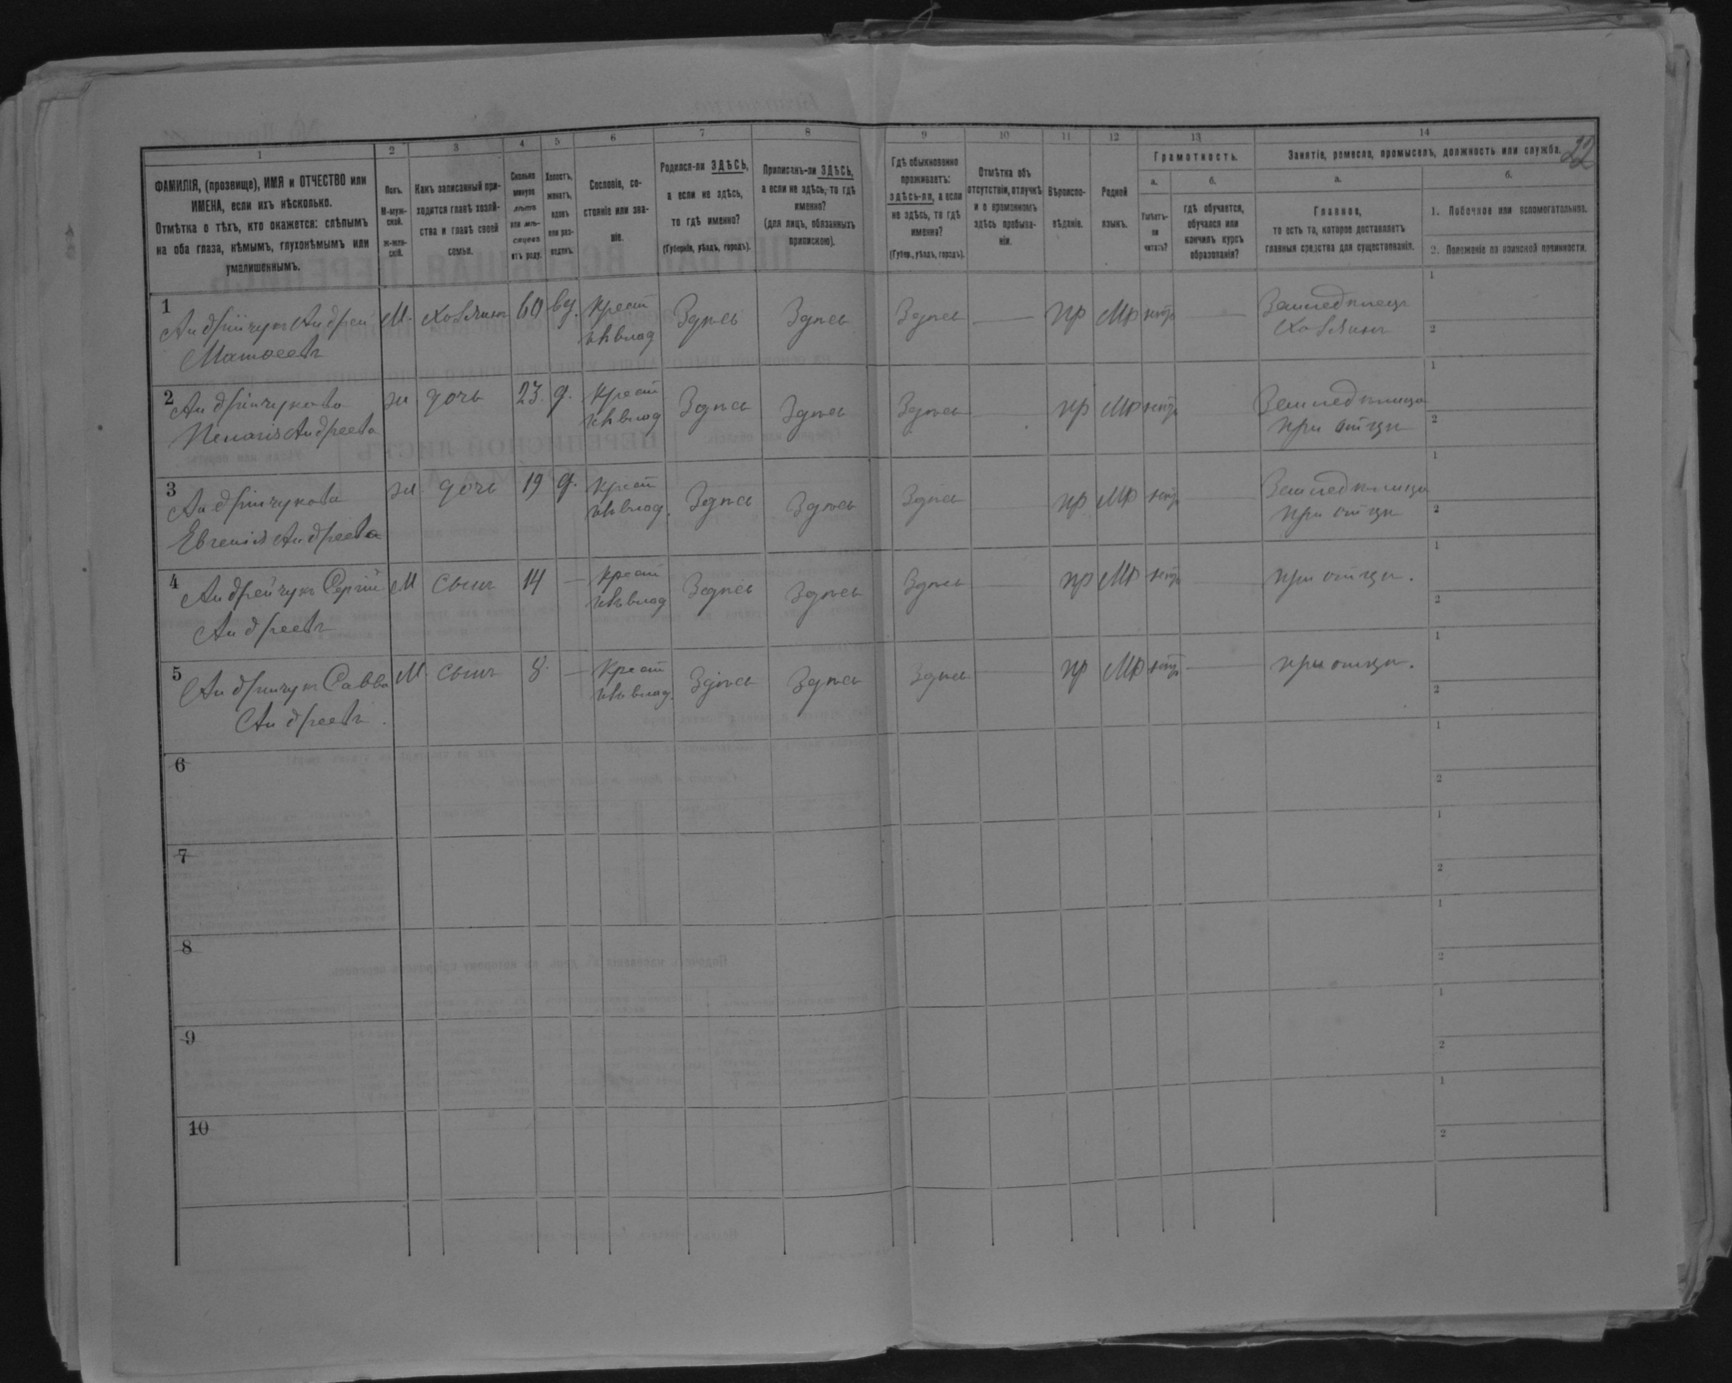 22
1 2 3 4 5 6 7 8 9 10 11 12 13 14
ФАМИЛІЯ, (прозвище), ИМЯ и ОТЧЕСТВО или
ИМЕНА, если ихъ нѣсколько.
Отмѣтка о тѣхъ, кто окажется: слѣпымъ
на оба глаза, нѣмымъ, глухонѣмымъ или
умалишеннымъ.
Полъ.
М-муж-
ской.
ж-жен-
скій.
Какъ записанный при-
ходится главѣ хозяй-
ства и главѣ своей
семьи.
Сколько
минуло
лѣтъ
или мѣ-
сяцевъ
отъ роду.
Холостъ,
женатъ,
вдовъ
или раз-
веденъ.
Сословіе, со-
стояніе или зва-
ніе.
Родился-ли ЗДѢСЬ,
а если не здѣсь,
то гдѣ именно?
(Губернія, уѣздъ, городъ).
Приписанъ-ли ЗДѢСЬ,
а если не здѣсь, то гдѣ
именно?
(для лицъ, обязанныхъ
припискою).
Гдѣ обыкновенно
проживаетъ:
здѣсь-ли, а если
не здѣсь, то гдѣ
именно?
(Губер., уѣздъ, городъ).
Отмѣтка объ
отсутствіи, отлучкѣ
и о временномъ
здѣсь пребыва-
ніи.
Вѣроиспо-
вѣданіе.
Родной
языкъ.
Грамотность.
а.
Умѣетъ-
ли
читать?
б.
гдѣ обучается,
обучался или
кончилъ курсъ
образованія?
Занятіе, ремесло, промыселъ, должность или служба.
а.
Главное,
то есть то, которое доставляетъ
главныя средства для существованія.
б.
1. Побочное или вспомогательное.
2. Положеніе по воинской повинности.
1 Андрійчукъ Андрей М. хозяинъ 60 вд. крест Здѣсь Здѣсь Здѣсь — пр Мр нѣтъ — Земледѣлецъ 1
Матвеевъ хозяинъ 2
2 Андрійчукова ж дочь 23. д. крест Здѣсь Здѣсь Здѣсь — пр Мр нѣтъ — Земледѣлица 1
Андреева при отцѣ 2
3 Андрійчукова ж дочь 19 д. крест Здѣсь Здѣсь Здѣсь — пр Мр нѣтъ — Земледѣлица 1
Евгенія Андреева при отцѣ 2
4 Андрейчукъ Сергій М сынъ 14 — крест Здѣсь Здѣсь Здѣсь — пр Мр нѣтъ — при отцѣ. 1
Андреевъ 2
5 Андрійчукъ Савва М сынъ 8. — крест Здѣсь Здѣсь Здѣсь — пр Мр нѣтъ — при отцѣ. 1
Андреевъ. 2
6 1
2
7 1
2
8 1
2
9 1
2
10 1
2